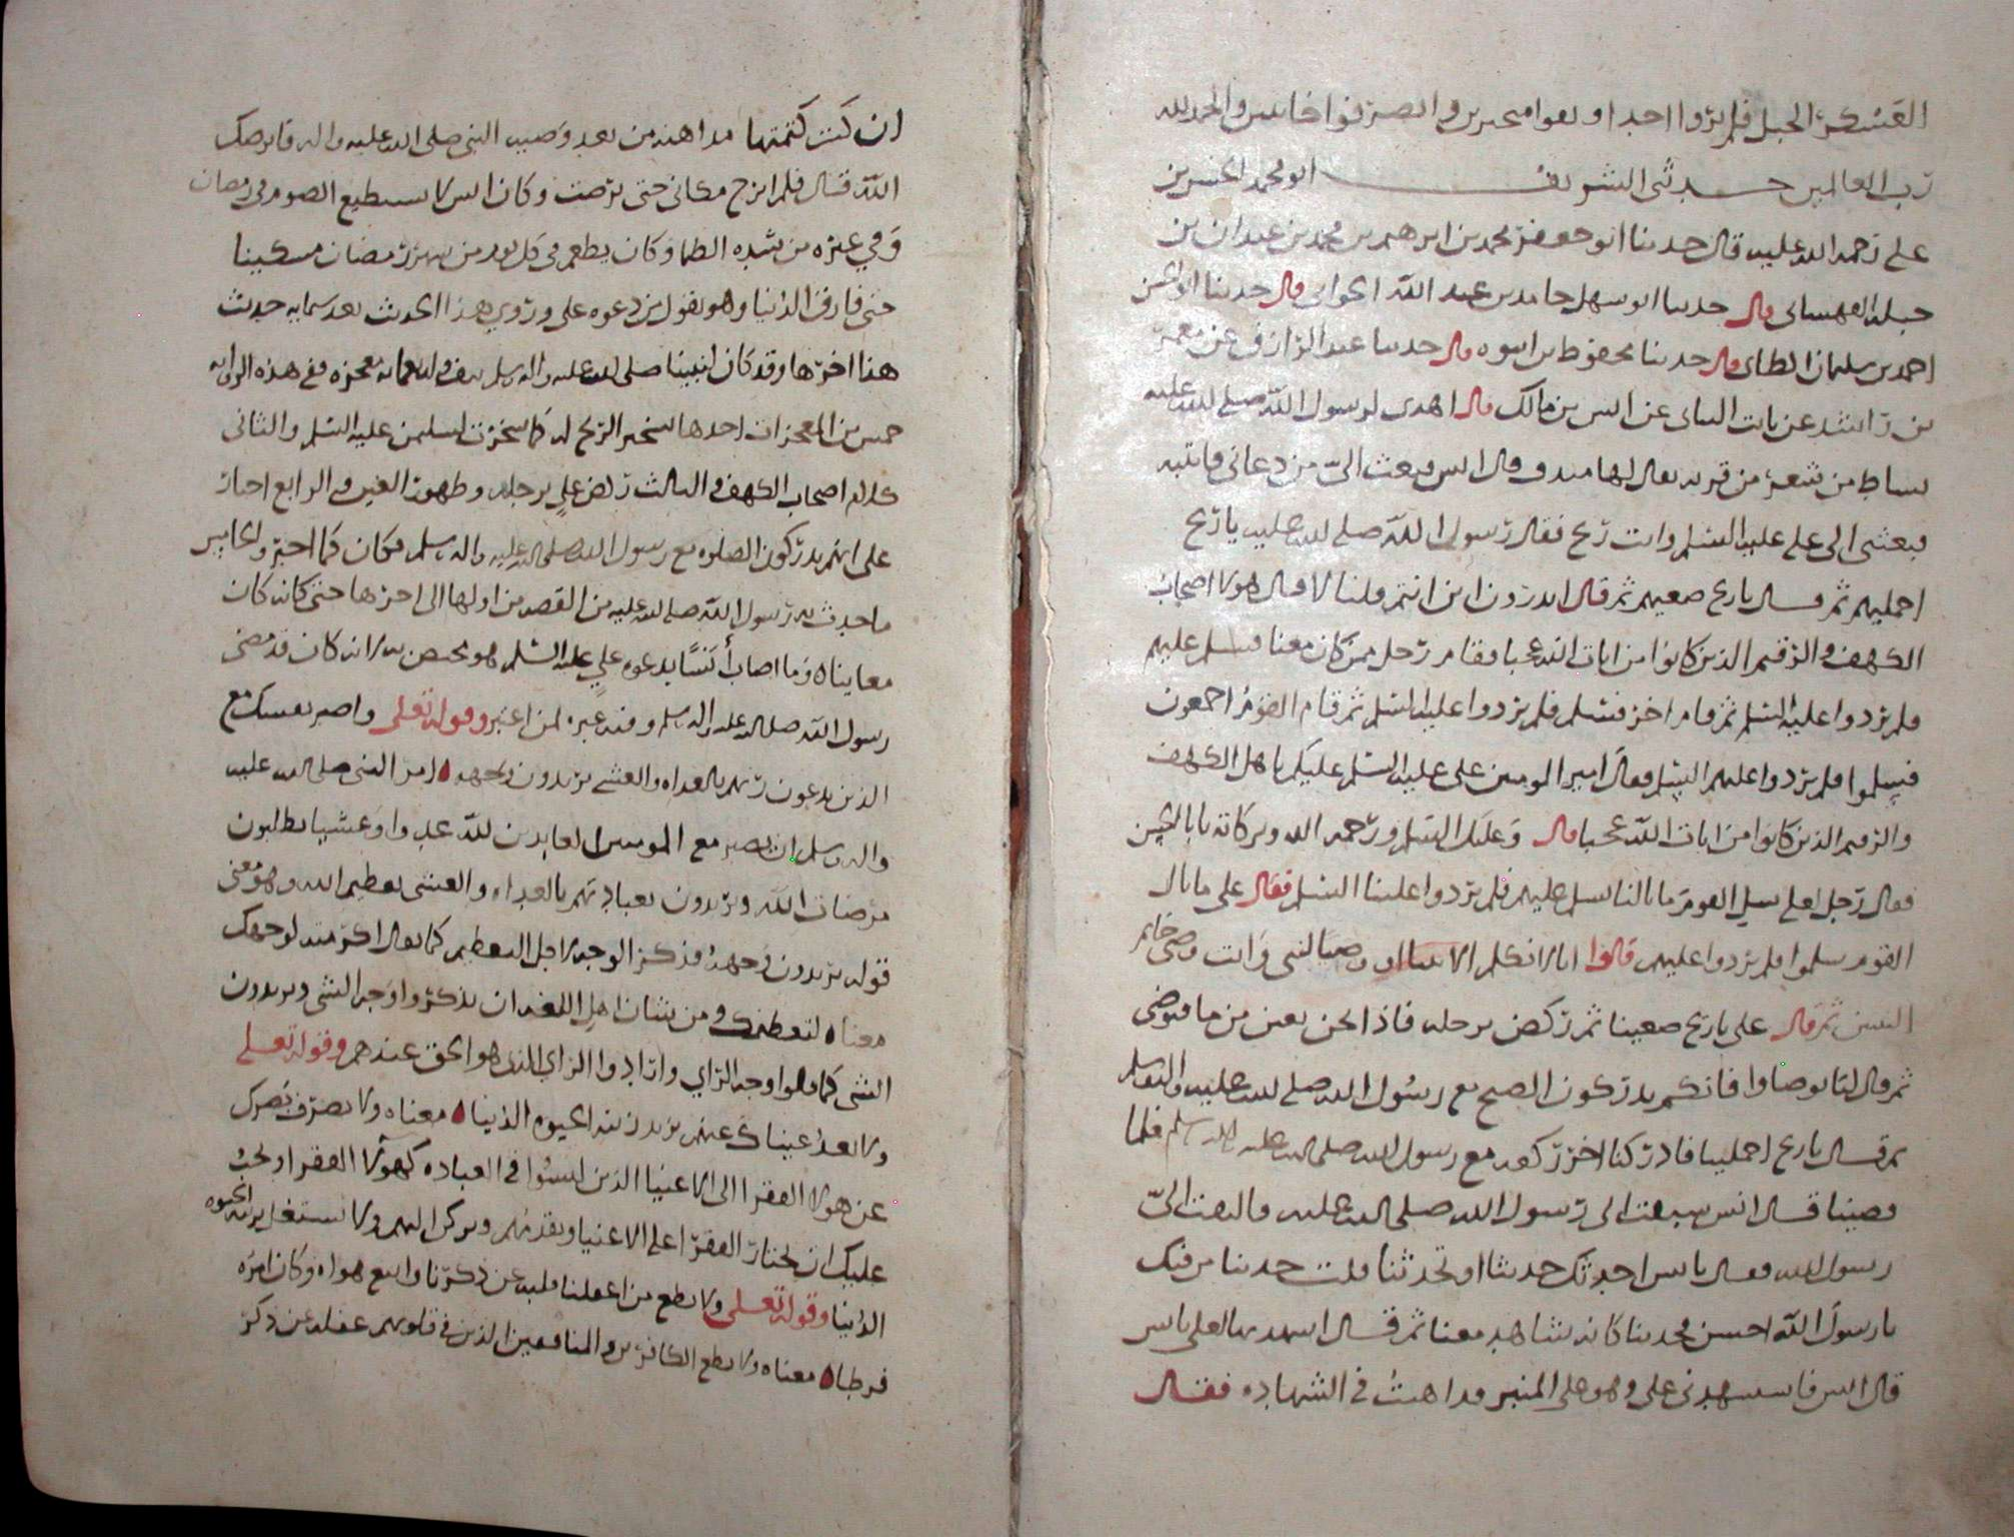 العسكر الجبل فلم يروا احدا وبقوا متحيرين وانصرفوا خائبين والحمد لله
رب العالمين حدثنى الشريف ابو محمد الحسن بن
على رحمه الله عليه قال حدثنا ابو جعفر محمد بن ابرهيم بن محمد بن عبدان بن
جبله القهستانى قال حدثنا ابو سهل حامد بن عبد الله الحوانى قال حدثنا ابو الحسن
احمد بن سليمان الطاى قال حدثنا محفوظ بن ابتوه قال حدثنا عبد الرازق عن معمر
بن راشد عن ثابت البنانى عن انس بن مالك قال اهدى لرسول الله صلى الله عليه
بساط من شعر من قريه يقال لها هندف قال انس فبعث الىّ من دعانى فاتيته
فبعثنى الى على عليه السلم وانت ريح فقال رسول الله صلى الله عليه يا ريح
احمليهم ثم قال يا ريح ضعيهم ثم قال اتدرون اين انتم قلنا لا قال هولا اصحاب
الكهف والرقيم الذين كانوا من ايات الله عجبا فقام رجل ممن كان معنا فسلم عليهم
فلم يردوا عليه السلم ثم قام اخر فسلم فلم يردوا عليه السلم ثم قام القوم اجمعون
فسلموا فلم يردوا عليهم السلم فقال امير المومنين على عليه السلم عليكم يا اهل الكهف
والرقيم الذين كانوا من ايات الله عجبا قال وعليك السلم ورحمه الله وبركاته يا با الحسن
فقال رجل لعلى سل القوم ما بالنا نسلم عليهم فلم يردوا علينا السلم فقال على ما بال
القوم سلموا فلم يردوا عليهم قالوا انا لا نكلم الا نبيا او وصيا لنبى وانت وصى خاتم
النبين ثم قال على يا ريح ضعينا ثم ركض برجله فاذا نحن بعين من ما فتوضى
ثم قال لنا توضاوا فانكم تدركون الصبح مع رسول الله صلى الله عليه واله وسلم
ثم قال يا ريح احملينا فادركنا اخر ركعه مع رسول الله صلى الله عليه واله وسلم فلما
قضينا قال انس سبقت الى رسول الله صلى الله عليه فالتفت الىّ
رسول الله فقال يا انس احدثك حديثا او تحدثنا قلت حديثا من فيك
يا رسول الله احسن فحدثنا كانه شاهد معنا ثم قال اشهد بها لعلى يا انس
قال انس فاستشهدنى على وهو على المنبر فداهنت فى الشهاده فقال
ان كنت كتمتها مداهنه من بعد وصيه النبى صلى الله عليه واله فابرصك
الله قال فلم ابرح مكانى حتى برصت وكان انس لا يستطيع الصوم فى رمضان
وفى غيره من شده الظما وكان يطعم فى كل يوم من شهر رمضان مسكينا
حتى فارق الدنيا وهو يقول من دعوه على وروى هذا الحديث بعد ستمايه حديث
هذا اخرها وقد كان لنبينا صلى الله عليه واله وسلم معجزه ففى هذه الروايه
خمس من المعجزات احدها تسخير الريح له كما سخرت لسليمن عليه السلم والثانى
كلام اصحاب الكهف والثالث ركض على برجله وظهور العين والرابع اخبار
على انهم يدركون الصلوه مع رسول الله صلى الله عليه واله وسلم فكان كما اخبر والخامس
ما حدث به رسول الله صلى الله عليه من القصه من اولها الى اخرها حتى كانه كان
معاينا ه وما اصاب أنسًا بدعوه علي عليه السلم هو مختص به لانه كان قد مضى
رسول الله صلى الله عليه واله وسلم وفيه عبره لمن اعتبر وقوله تعلى واصبر نفسك مع
الذين يدعون ربهم بالغداه والعشى يريدون وجهه ه امر النبى صلى الله عليه
واله وسلم ان يصبر مع المومنين العابدين لله غدوا وعشيا يطلبون
مرضات الله ويريدون بعبادتهم بالغداه والعشى تعظيم الله وهو معنى
قوله يريدون وجهه فذكر الوجه لاجل التعظيم كما يقال اكرمته لوجهك
معناه لتعظيمك ومن شان اهل اللغه ان يذكروا وجه الشى ويريدون
الشى كما قالوا وجه الراى وارادوا الراى الذى هو الحق عندهم وقوله تعلى
ولا تعد عيناك عنهم تريد زينه الحيوه الدنيا ه معناه ولا تصرف بصرك
عن هولا الفقرا الى الاغنيا الذين ليسوا فى العباده كهولا الفقرا ويجب
عليك ان تختار الفقرا على الاغنيا وتقدمهم وتركن اليهم ولا تشتغل بزينه الحيوه
الدنيا وقوله تعلى ولا تطع من اغفلنا قلبه عن ذكرنا واتبع هواه وكان امره
فرطا ه معناه ولا تطع الكافرين والمنافقين الذين فى قلوبهم غفله عن ذكر